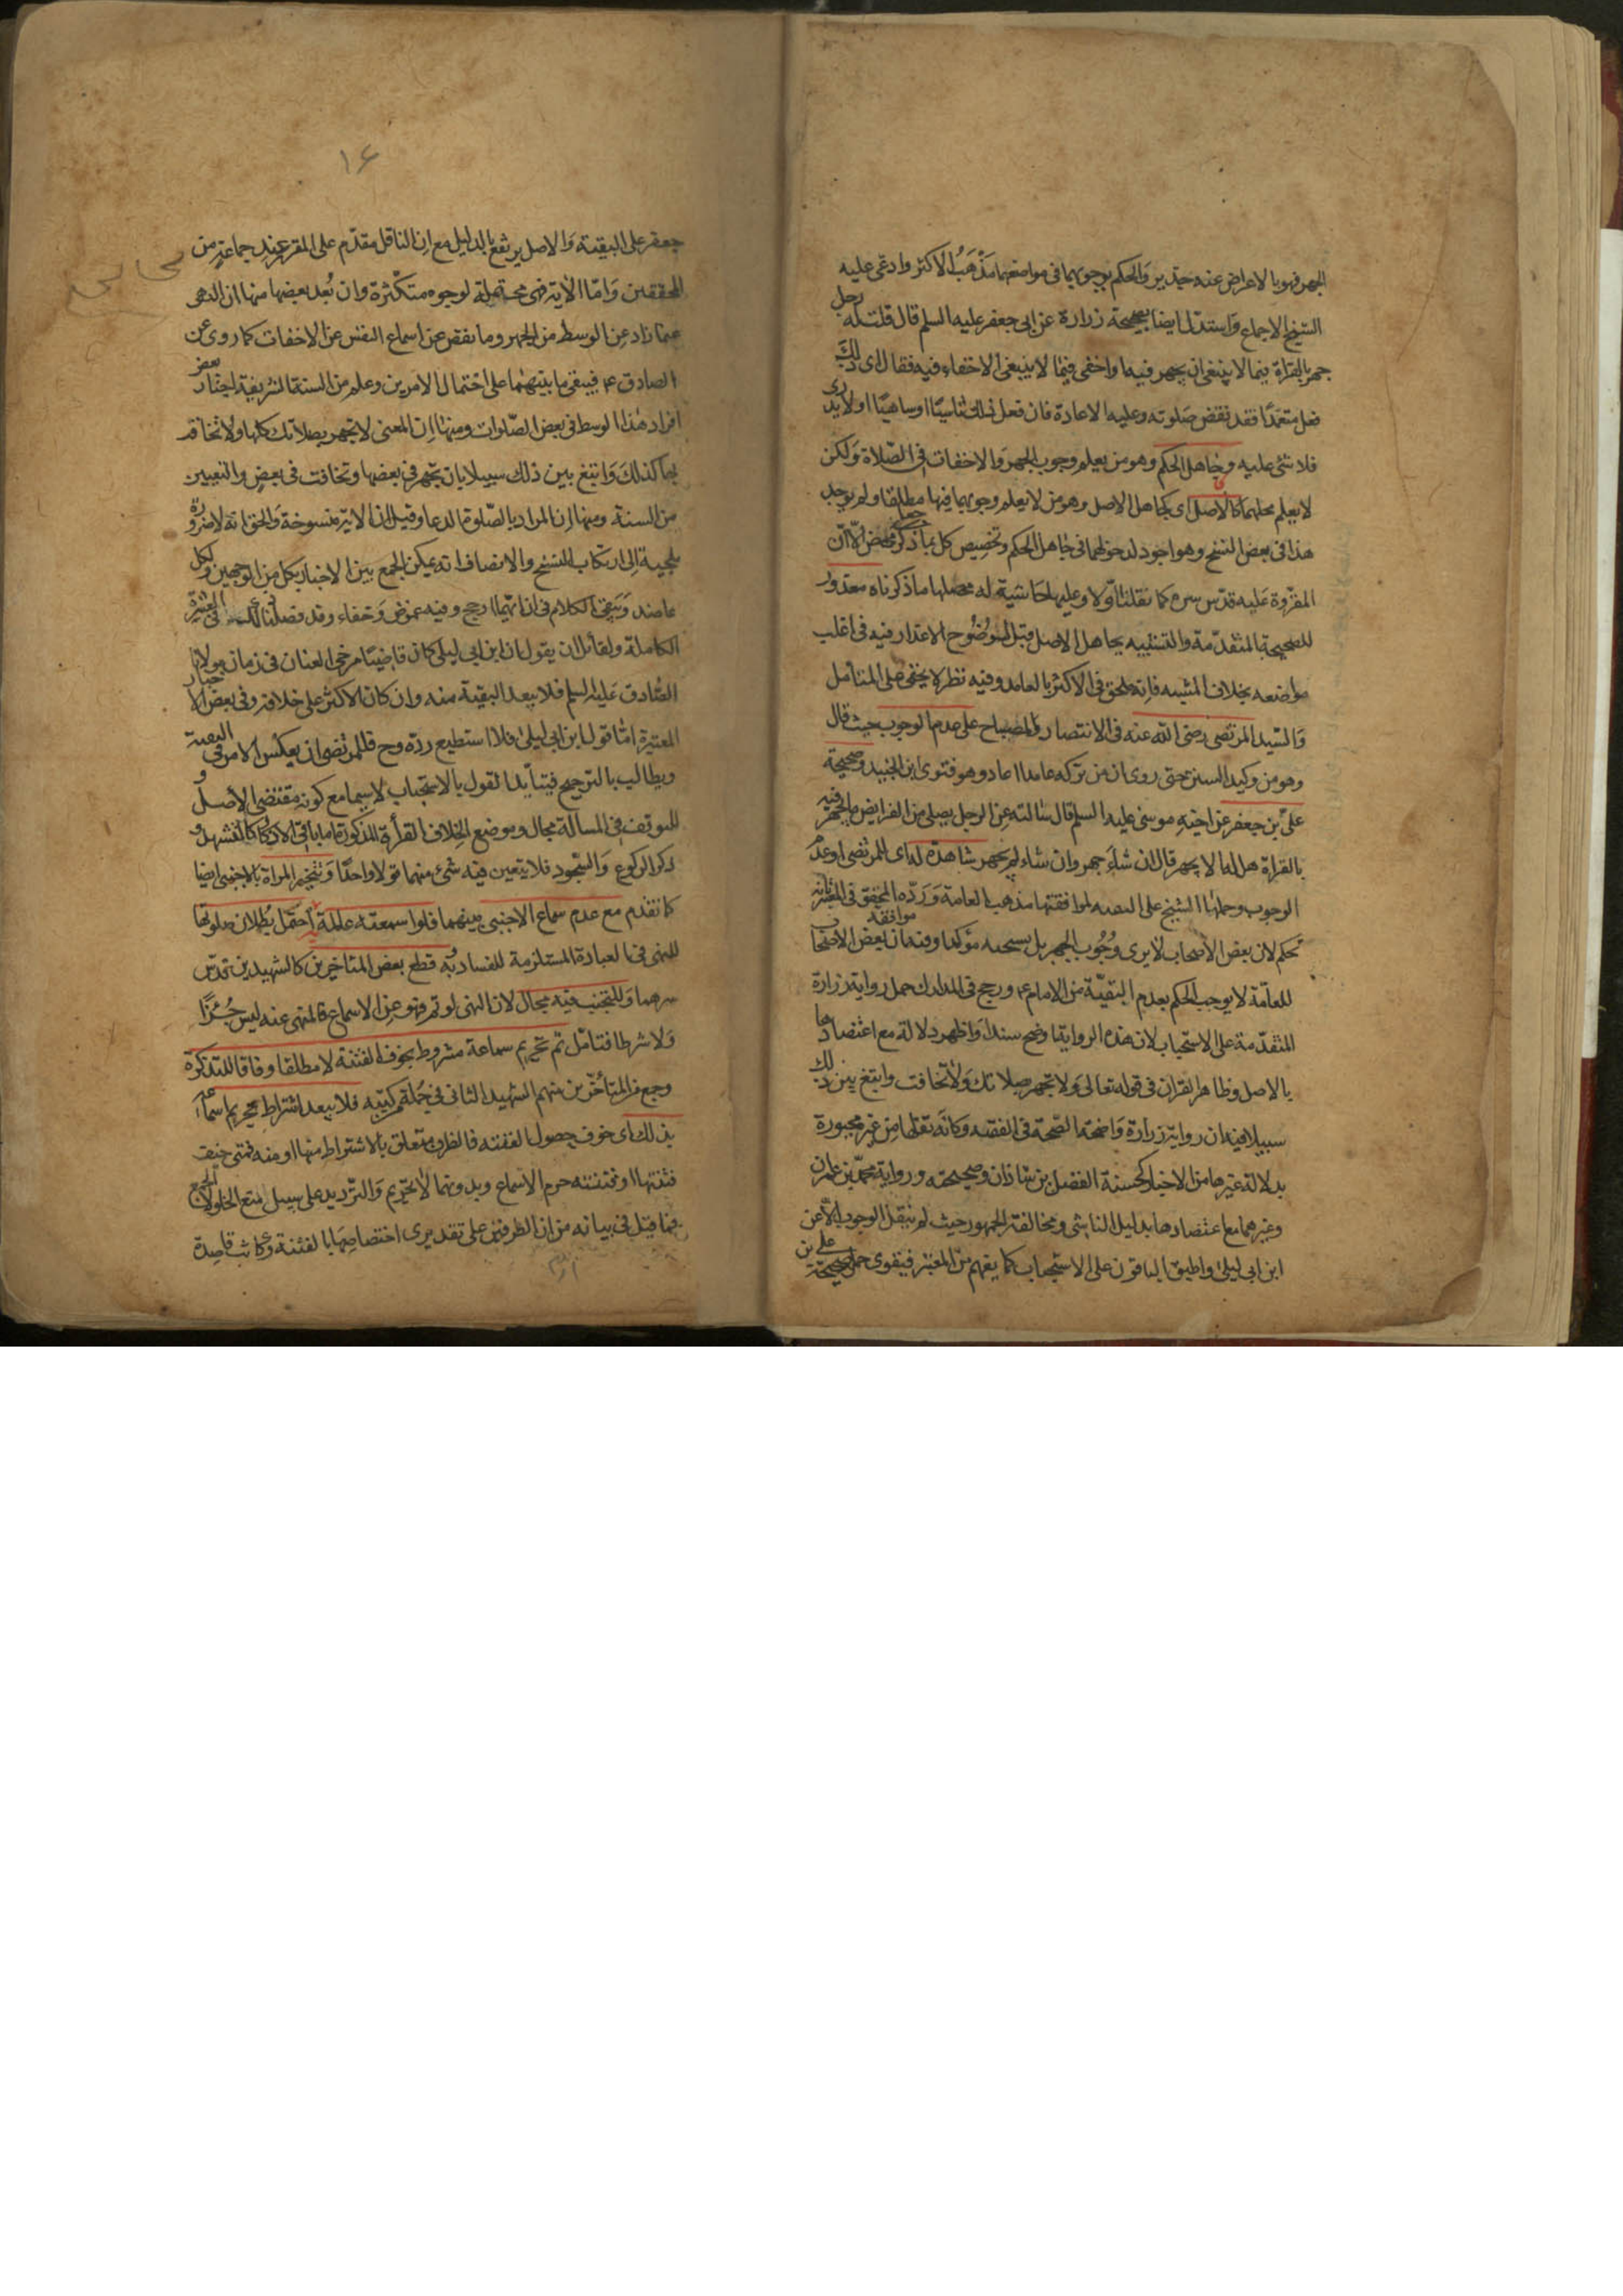 الجهر فهو بالاعراض عنه جدير والحكم بوجوبهما فى مواضعهما مذهب الاكثر وادعى عليه
الشيخ الاجماع واستدل ايضا بصحيحة زرارة عن ابى جعفر عليه السلم قال قلت له رجل
جهر بالقراة فيما لا ينبغى ان يجهر فيه او اخفى فيما لا ينبغى الاخفاء فيه فقال اى ذلك
فعل متعمدًا فقد نقض صلوته وعليه الاعادة فان فعل ذلك ناسيًا او ساهيًا او لا يدرى
فلا شئ عليه وجاهل الحكم وهو من يعلم وجوب الجهر والاخفات فى الصلاة ولكن
لا يعلم محلهما كالاصل اى كجاهل الاصل وهو من لا يعلم وجوبهما فيها مطلقا ولم يوجد
هذا فى بعض النسخ وهو اجود لدخولهما فى جاهل الحكم وتخصيص كل بما ذكر محض الا ان
المقروة عليه قدس سره كما نقلنا اولا وعليها حاشية له محصلها ما ذكرناه معذور
للصحيحة المتقدمة والتشبيه بجاهل الاصل قبل لوضوح الاعذار فيه فى اغلب
مواضعه بخلاف المشبه فانه ملحق فى الاكثر بالعامد وفيه نظر لا يخفى على المتأمل
والسيد المرتضى رضى الله عنه فى الانتصار والمصباح على عدم الوجوب حيث قال
وهو من وكيد السنن حتى روى ان من تركه عامدا اعاد وهو فتوى ابن الجنيد وصحيحة
على بن جعفر عن اخيه موسى عليه السلم قال سالته عن الرجل يصلى من الفرايض ما يجهر فيه
بالقراة هل له الا يجهر قال ان شاء جهر وان شاء لم يجهر شاهدة له اى للمرتضى او عدم
الوجوب وحملها الشيخ على التقيه لموافقتها مذهب العامة ورده المحقق فى المعتبر بانه
تحكم لان بعض الاصحاب لا يرى وجوب الجهر بل يستحبه مؤكدا وفيه ان موافقة بعض الاصحاب
للعامة لا يوجب الحكم بعدم التقية من الامام ع ورجح فى المدارك حمل رواية زرارة
المتقدمة على الاستحباب لان هذه الرواية اوضح سندا واظهر دلالة مع اعتضادها
بالاصل وظاهر القران فى قوله تعالى ولا تجهر بصلاتك ولا تخافت وابتغ بين ذلك
سبيلا فيه ان رواية زرارة واضحة الصحة فى الفقيه وكانه نقلها من غير مجبورة
بدلالة غيرها من الاخبار كحسنة الفضل بن شاذان وصحيحته ورواية محمد بن عمران
وغيرهما مع اعتضادها بدليل التاسى ومخالفة الجمهور حيث لم ينقل الوجوب الا عن
ابن ابى ليلى واطبق الباقون على الاستحباب كما يفهم من المعتبر فيقوى حمل صحيحة على بن
١٤
جعفر على التقية والاصل يرتفع بالدليل مع ان الناقل مقدم على المقرر عند جماعة من
المحققين واما الاية فهى محتملة لوجوه متكثرة وان بعد بعضها منها ان النهى
عما زاد عن الوسط من الجهر وما نقص عن اسماع النفس عن الاخفات كما روى عن
الصادق ع فيبقى ما بينهما على احتمال الامرين وعلم من السنة الشريفة اختيار بعض
افراد هذا الوسط فى بعض الصلوات ومنها ان المعنى لا تجهر بصلاتك كلها ولا تخافت
بها كذلك وابتغ بين ذلك سبيلا بان تجهر فى بعضها وتخافت فى بعض والتعيين
من السنة ومنها ان المراد بالصلوة الدعا وقيل ان الاية منسوخة والحق انه لا ضرورة
ملجية الى ارتكاب النسخ والانصاف انه يمكن الجمع بين الاخبار بكل من الوجهين ولكل
عاضد ويبقى الكلام فى ان ايهما ارجح وفيه غموض وخفاء وقد فصلنا ذلك فى
الكاملة ولقائل ان يقول ان ابن ابى ليلى كان قاضيًا مرخى العنان فى زمان مولانا
الصادق عليه السلم فلا يبعد التقية منه وان كان الاكثر على خلافه وفى بعض الاخبار
المعتبرة اما قول ابن ابى ليلى فلا استطيع رده وح فللمرتضى ان يعكس الامر فى التقية
ويطالب بالترجيح فيتأيد القول بالاستحباب لا سيما مع كونه مقتضى الاصل و
للتوقف فى المسألة مجال وموضع الخلاف القرأة المذكورة اما باقى الاذكار كالتشهد و
ذكر الركوع والسجود فلا يتعين فيه شئ منهما قولا واحدًا وتتخير المراة بالاجنبى ايضا
كما تقدم مع عدم سماع الاجنبى منهما فلو اسمعته عالمة احتمل بطلان صلوتها
للنهى فى العبادة المستلزمة للفساد وبه قطع بعض المتاخرين كالشهيدين قدس
سرهما وللتجنب فيه مجال لان النهى لو تم فهو عن الاسماع فالمنهى عنه ليس جزًا
ولا شرطا فتامل ثم تحريم سماعه مشروط بخوف الفتنة لا مطلقا وفاقا للتذكرة
وجمع من المتأخرين منهم الشهيد الثانى فى جملة من كتبه فلا يبعد اشتراط تحريم اسماعها
بذلك اى خوف حصول الفتنه فالظرف متعلق بالاشتراط منها او منه فمتى خيفت
فتنتها او فتنته حرم الاسماع وبدونهما لا تحريم والترديد على سبيل منع الخلو لا الجمع
فما قيل فى بيانه من ان الظرفين على تقديرى اختصاصها بالفتنة وكانت قاصدة